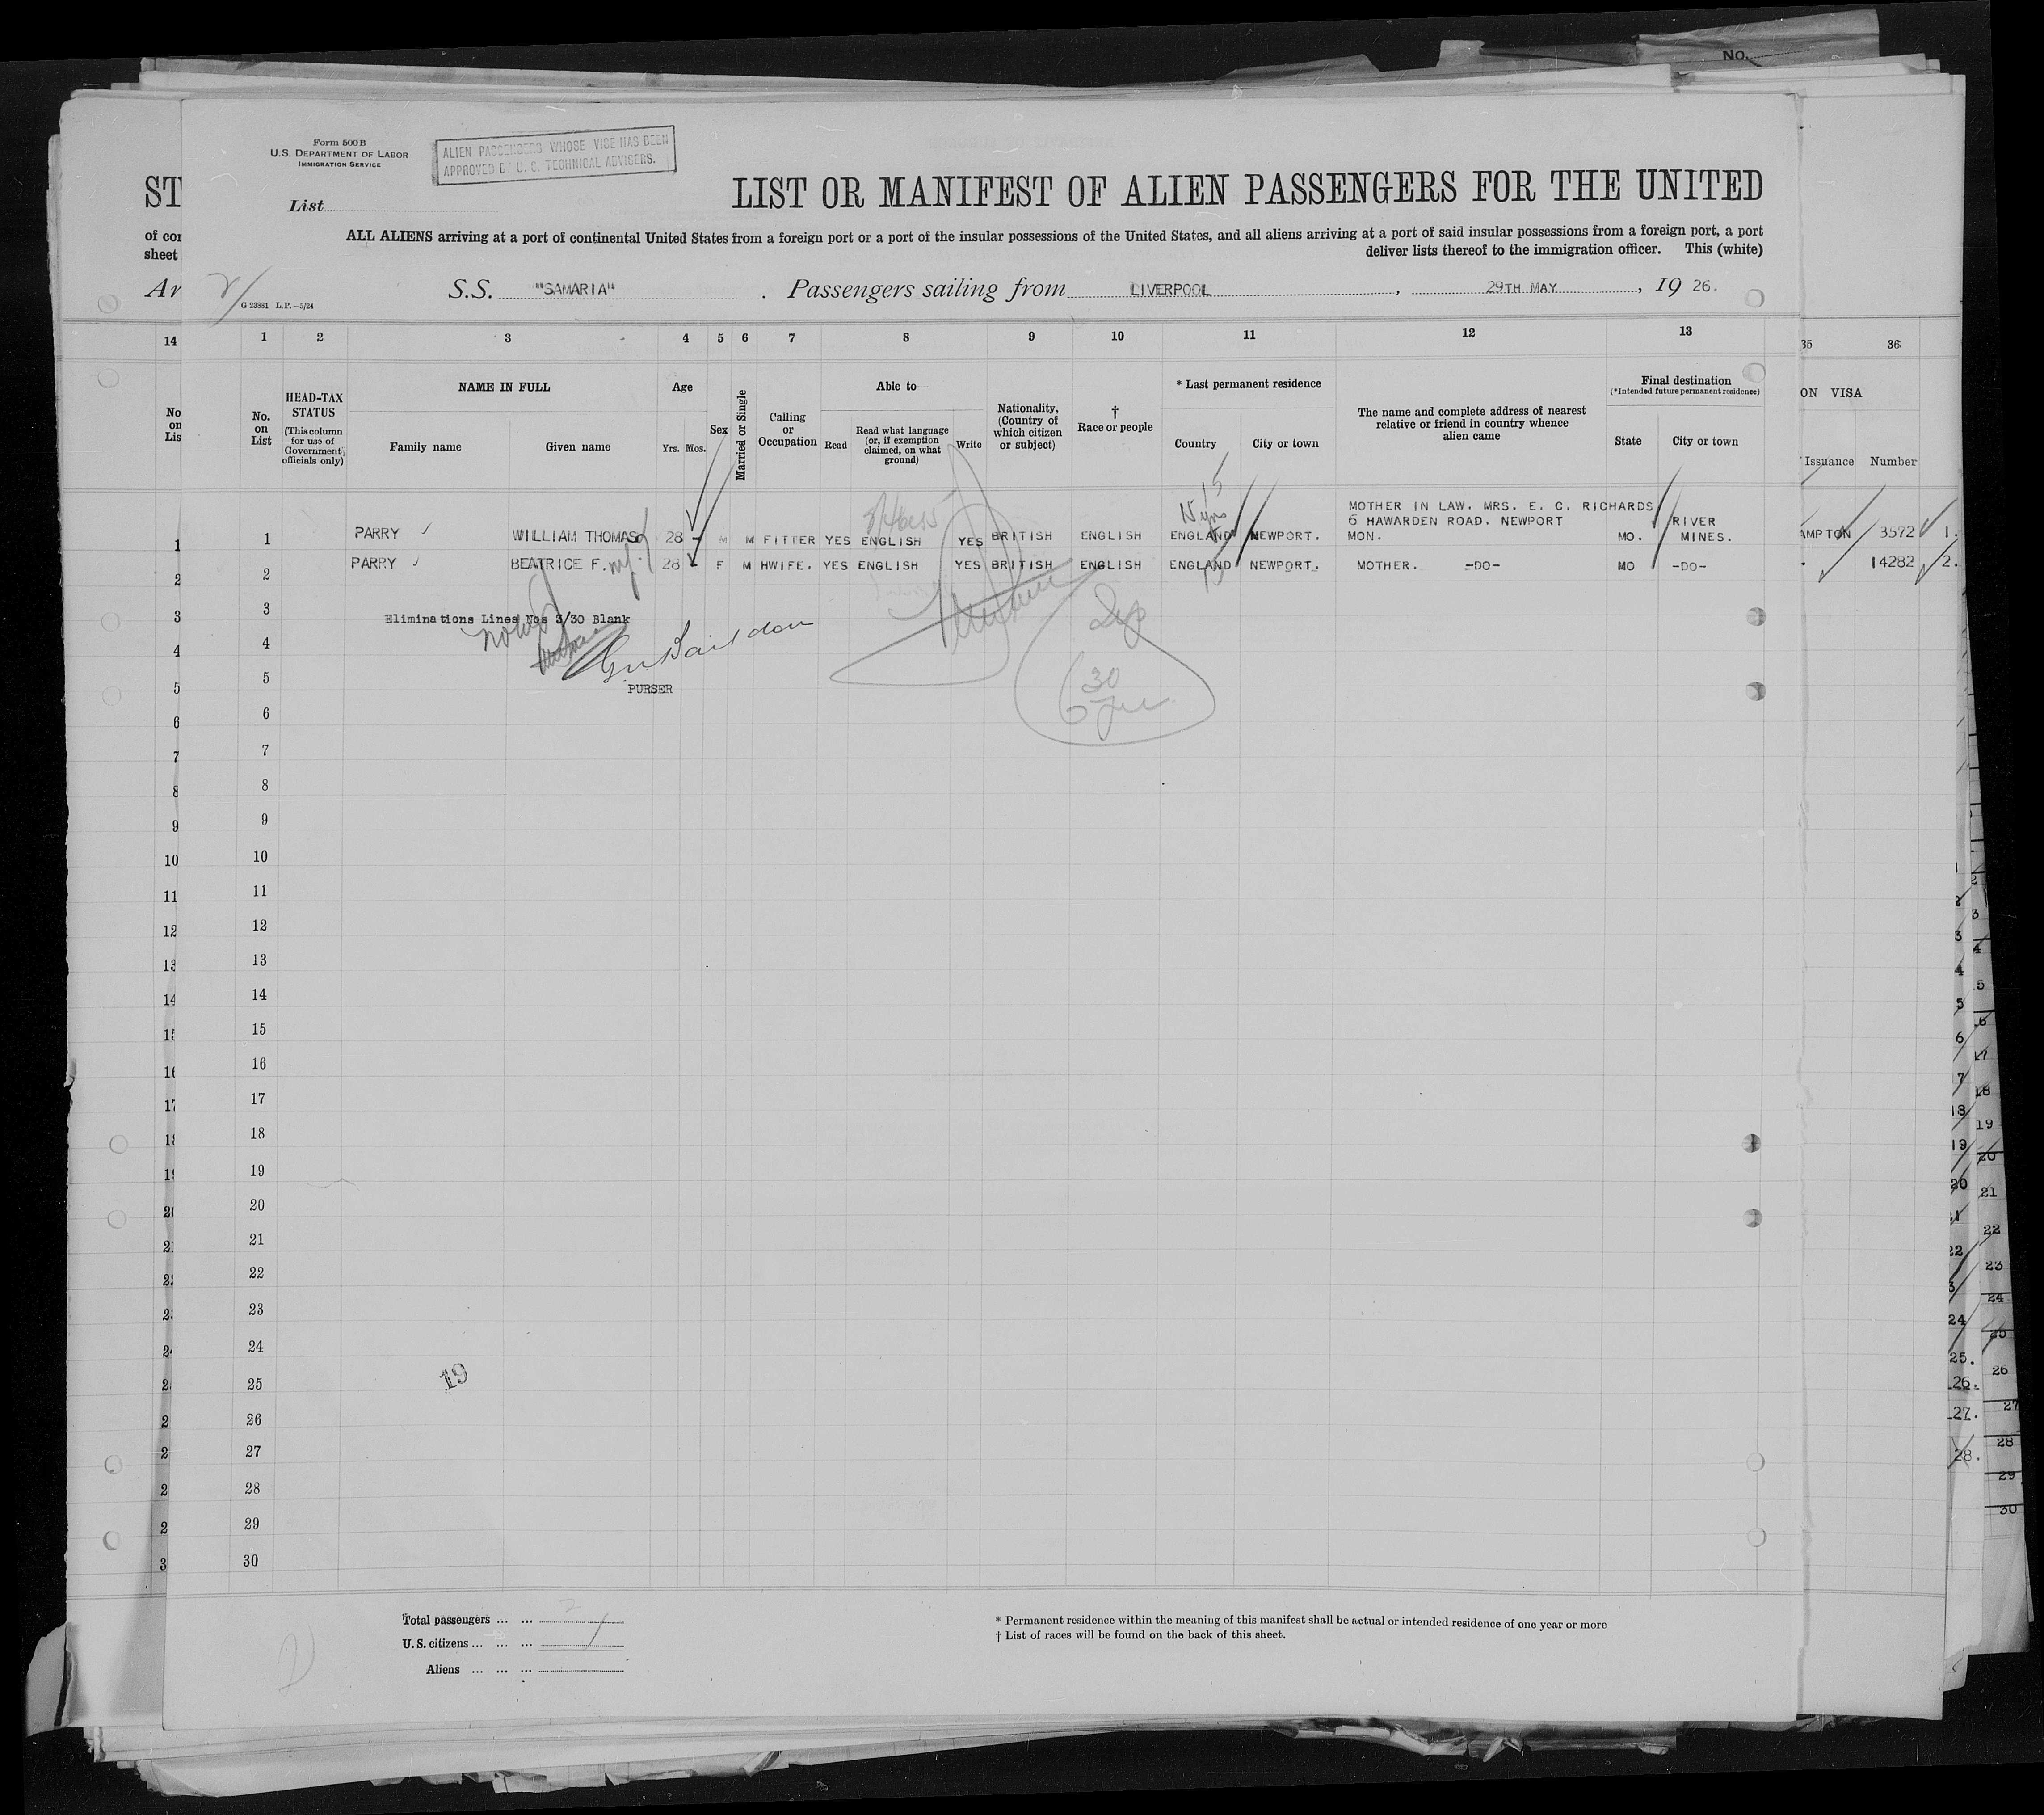 NO.
Form 500 B
U.S. DEPARTMENT OF LABOR
IMMIGRATION SERVICE
ALIEN PASSENGERS WHOSE VISE HAS BEEN
APPROVED BY U. S. TECHNICAL ADVISERS.
ST
LIST OR MANIFEST OF ALIEN PASSENGERS FOR THE UNITED
List
of con
ALL ALIENS arriving at a port of continental United States from a foreign port or a port of the insular possessions of the United States, and all aliens arriving at a port of said insular possessions from a foreign port, a port
sheet
deliver lists thereof to the immigration officer. This (white)
Ar
S.S. "SAMARIA". Passengers sailing from LIVERPOOL, 29TH MAY, 19 26.
G 23881 L.P.—5/24
14 1 2 3 4 5 6 7 8 9 10 11 12 13 35 36
No. on List
HEAD-TAX STATUS
(This column for use of Government officials only)
NAME IN FULL
Family name Given name
Age
Yrs. Mos.
Sex
Married or Single
Calling or Occupation
Able to—
Read
Read what language (or, if exemption claimed, on what ground)
Write
Nationality, (Country of which citizen or subject)
† Race or people
* Last permanent residence
Country City or town
The name and complete address of nearest relative or friend in country whence alien came
Final destination
(*Intended future permanent residence)
State City or town
ON VISA
Issuance Number
MOTHER IN LAW. MRS. E. C. RICHARDS
6 HAWARDEN ROAD. NEWPORT RIVER
1 PARRY WILLIAM THOMAS 28 - M M FITTER YES ENGLISH YES BRITISH ENGLISH ENGLAND NEWPORT. MON. MO. MINES. AMPTON 3572 1.
2 PARRY BEATRICE F. 28 F M HWIFE. YES ENGLISH YES BRITISH ENGLISH ENGLAND NEWPORT. MOTHER. -DO- MO -DO- 14282 2.
3
Eliminations Lines Nos 3/30 Blank
4
5
PURSER
30
6
7
8
9
10
11
12
13
14
15
16
17
18
19
20
21
22
23
24
25
19
26
27
28
29
30
Total passengers ... ... 2
U.S. citizens ... ... ...
Aliens ... ... ...
* Permanent residence within the meaning of this manifest shall be actual or intended residence of one year or more
† List of races will be found on the back of this sheet.